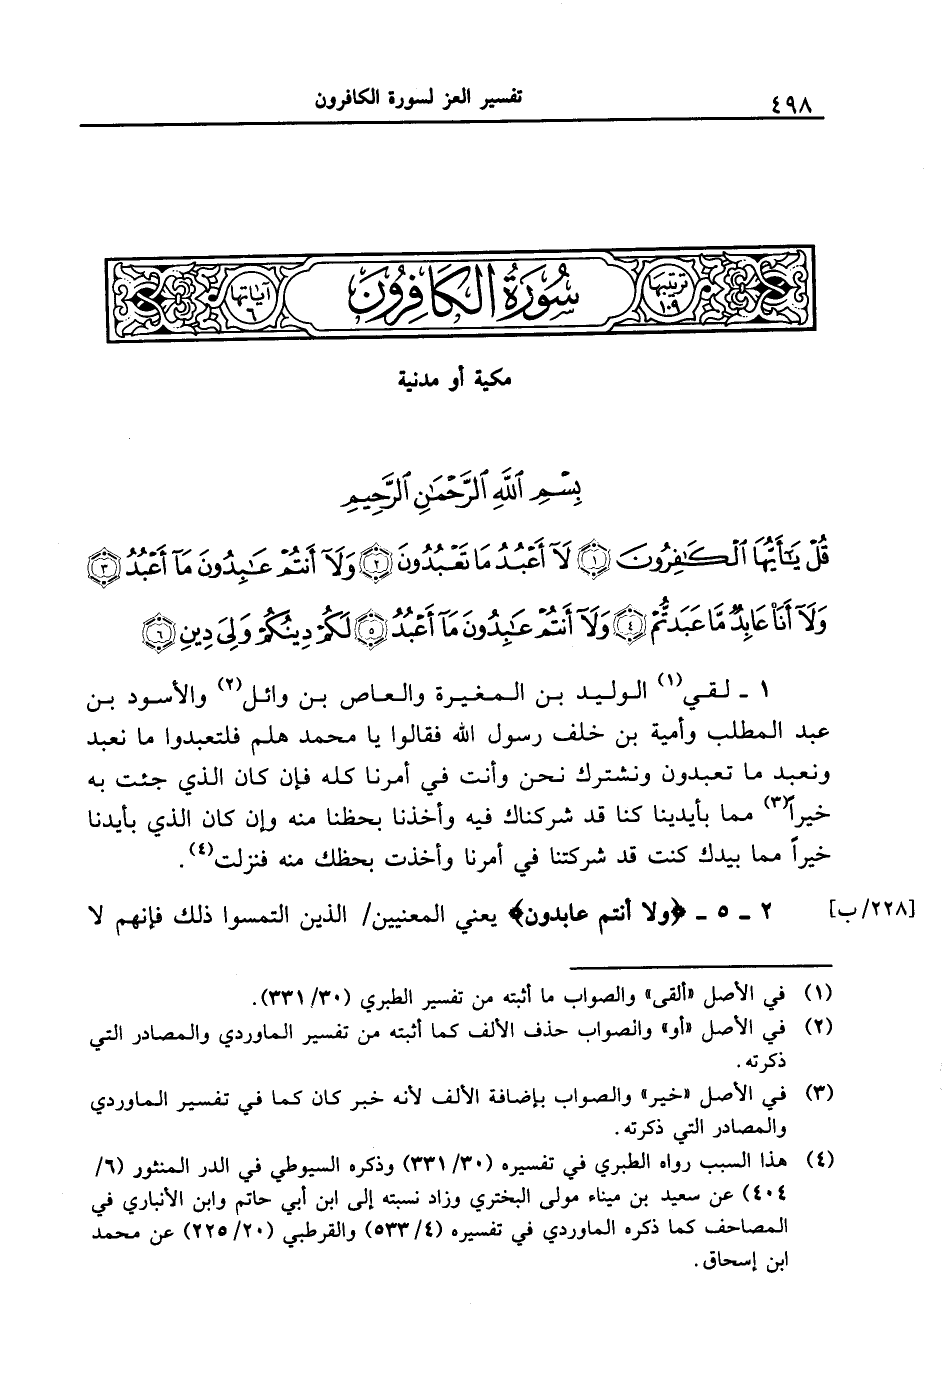 ٤٩٨
تفسير العز لسورة الكافرون
ترتيبها ١٠٩
سُورَةُ الكَافِرُونَ
آياتها ٦
مكية أو مدنية
بِسْمِ ٱللَّهِ ٱلرَّحْمَٰنِ ٱلرَّحِيمِ
قُلْ يَٰٓأَيُّهَا ٱلْكَٰفِرُونَ ١ لَآ أَعْبُدُ مَا تَعْبُدُونَ ٢ وَلَآ أَنتُمْ عَٰبِدُونَ مَآ أَعْبُدُ ٣
وَلَآ أَنَا۠ عَابِدٌ مَّا عَبَدتُّمْ ٤ وَلَآ أَنتُمْ عَٰبِدُونَ مَآ أَعْبُدُ ٥ لَكُمْ دِينُكُمْ وَلِىَ دِينِ ٦
١ ـ لقي(١) الوليد بن المغيرة والعاص بن وائل(٢) والأسود بن
عبد المطلب وأمية بن خلف رسول الله فقالوا يا محمد هلم فلتعبدوا ما نعبد
ونعبد ما تعبدون ونشترك نحن وأنت في أمرنا كله فإن كان الذي جئت به
خيراً(٣) مما بأيدينا كنا قد شركناك فيه وأخذنا بحظنا منه وإن كان الذي بأيدنا
خيراً مما بيدك كنت قد شركتنا في أمرنا وأخذت بحظك منه فنزلت(٤).
[٢٢٨/ب] ٢ ـ ٥ ـ ﴿ولا أنتم عابدون﴾ يعني المعنيين/ الذين التمسوا ذلك فإنهم لا
(١) في الأصل «ألقى» والصواب ما أثبته من تفسير الطبري (٣٠/ ٣٣١).
(٢) في الأصل «أو» والصواب حذف الألف كما أثبته من تفسير الماوردي والمصادر التي
ذكرته.
(٣) في الأصل «خير» والصواب بإضافة الألف لأنه خبر كان كما في تفسير الماوردي
والمصادر التي ذكرته.
(٤) هذا السبب رواه الطبري في تفسيره (٣٠/ ٣٣١) وذكره السيوطي في الدر المنثور (٦/
٤٠٤) عن سعيد بن ميناء مولى البختري وزاد نسبته إلى ابن أبي حاتم وابن الأنباري في
المصاحف كما ذكره الماوردي في تفسيره (٤/ ٥٣٣) والقرطبي (٢٠/ ٢٢٥) عن محمد
ابن إسحاق.